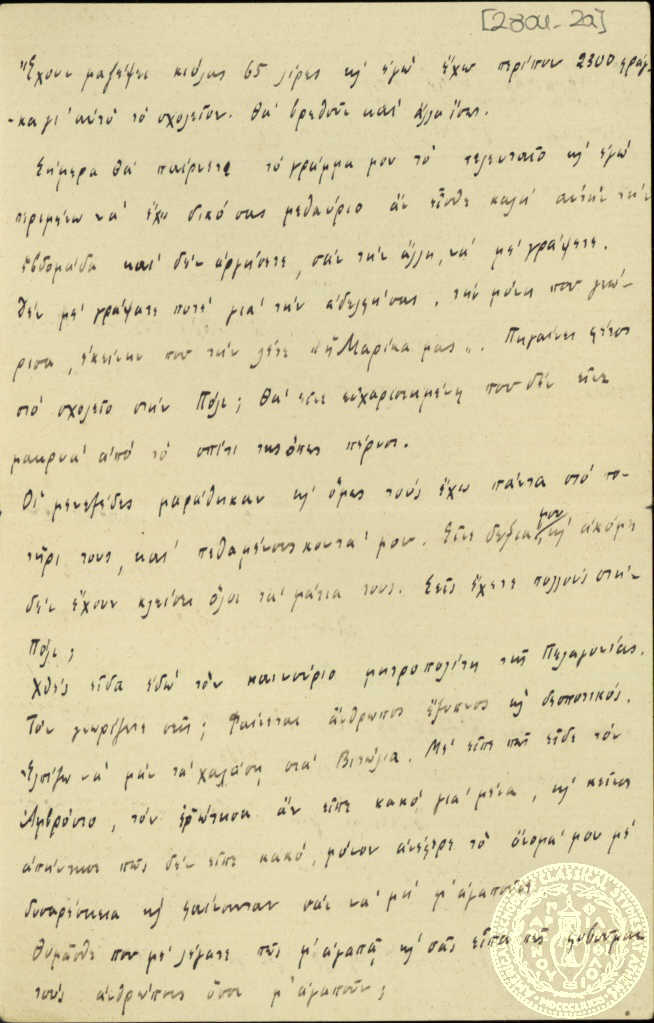 [2301-2a]
Ἔχουν μαζέψει κιόλας 65 λίρες κι' ἐγὼ ἔχω περίπου 2300 φράγ-
-κα γι' αὐτὸ τὸ σχολεῖον. Θὰ βρεθοῦν καὶ ἄλλα ἴσως.
Σήμερα θὰ παίρνετε τὸ γράμμα μου τὸ τελευταῖο κι' ἐγὼ
περιμένω νὰ ἔχω δικό σας μεθαύριο ἂν εἶσθε καλὰ αὐτὴν τὴν
ἑβδομάδα καὶ δὲν ἀργήσετε, σὰν τὴν ἄλλη, νὰ μὲ γράψετε.
Δὲν μὲ γράψατε ποτὲ γιὰ τὴν ἀδελφή σας, τὴν μόνη που γνώ-
ρισα, ἐκείνην που τὴν λέτε "ἡ Μαρίκα μας". Πηγαίνει φέτος
στὸ σχολεῖο στὴν Πόλι; Θὰ εἶνε εὐχαριστημένη που δὲν εἶνε
μακρυὰ ἀπὸ τὸ σπίτι της ὅπως πέρυσι.
Οἱ μενεξέδες μαράθηκαν κι' ὅμως τοὺς ἔχω πάντα στὸ πο-
τῆρι τους, καὶ πεθαμένους κοντά μου. Εἶνε δεξιά μου, κι' ἀκόμη
δὲν ἔχουν κλείσει ὅλοι τὰ μάτια τους. Σεῖς ἔχετε πολλοὺς στὴν
Πόλι;
Χθὲς εἶδα ἐδῶ τὸν καινούριο μητροπολίτη τῆς Πελαγονίας.
Τὸν γνωρίζετε σεῖς; Φαίνεται ἄνθρωπος ἔξυπνος κι' δεσποτικός.
Ἐλπίζω νὰ μὴν τὰ χαλάσῃ στὰ Βιτώλια. Μὲ εἶπε πῶς εἶδε τὸν
Ἀμβρόσιο, τὸν ἐρώτησα ἂν εἶπε κακὸ γιὰ μένα, κι' κεῖνος
ἀπήντησε πῶς δὲν εἶπε κακό, μόνον ἀνέφερε τὸ ὄνομά μου μὲ
δυσαρέσκεια κι' φαίνονταν σὰν νὰ μὴ μ' ἀγαποῦσε
Θυμᾶσθε που μὲ λέγατε πῶς μ' ἀγαπᾷ κι' σᾶς εἶπα πῶς φοβοῦμαι
τοὺς ἀνθρώπους ὅσοι μ' ἀγαποῦν;